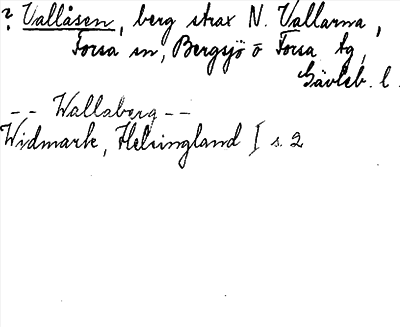 ? Vallåsen, berg strax N. Vallarna,
Forsa sn, Bergsjö o Forsa tg,
Gävleb. l.
-- Wallaberg --
Widmark, Helsingland I s. 2